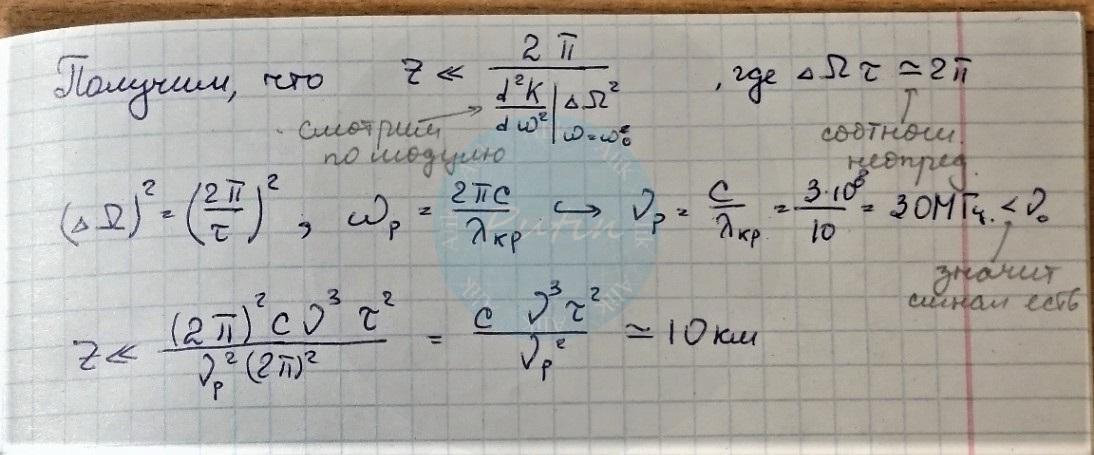 Получим, что z ≪ 2π / (d²K/dω² |ω=ω₀ ΔΩ²), где ΔΩτ ≃ 2π
смотрим по модулю
соотнош. неопред.
(ΔΩ)² = (2π/τ)²; ωp = 2πc/λкр ↪ νp = c/λкр = 3·10⁸/10 = 30МГц. < ν₀
значит сигнал есть
z ≪ (2π)² c ν³ τ² / νp² (2π)² = c ν³ τ² / νp² ≃ 10 км